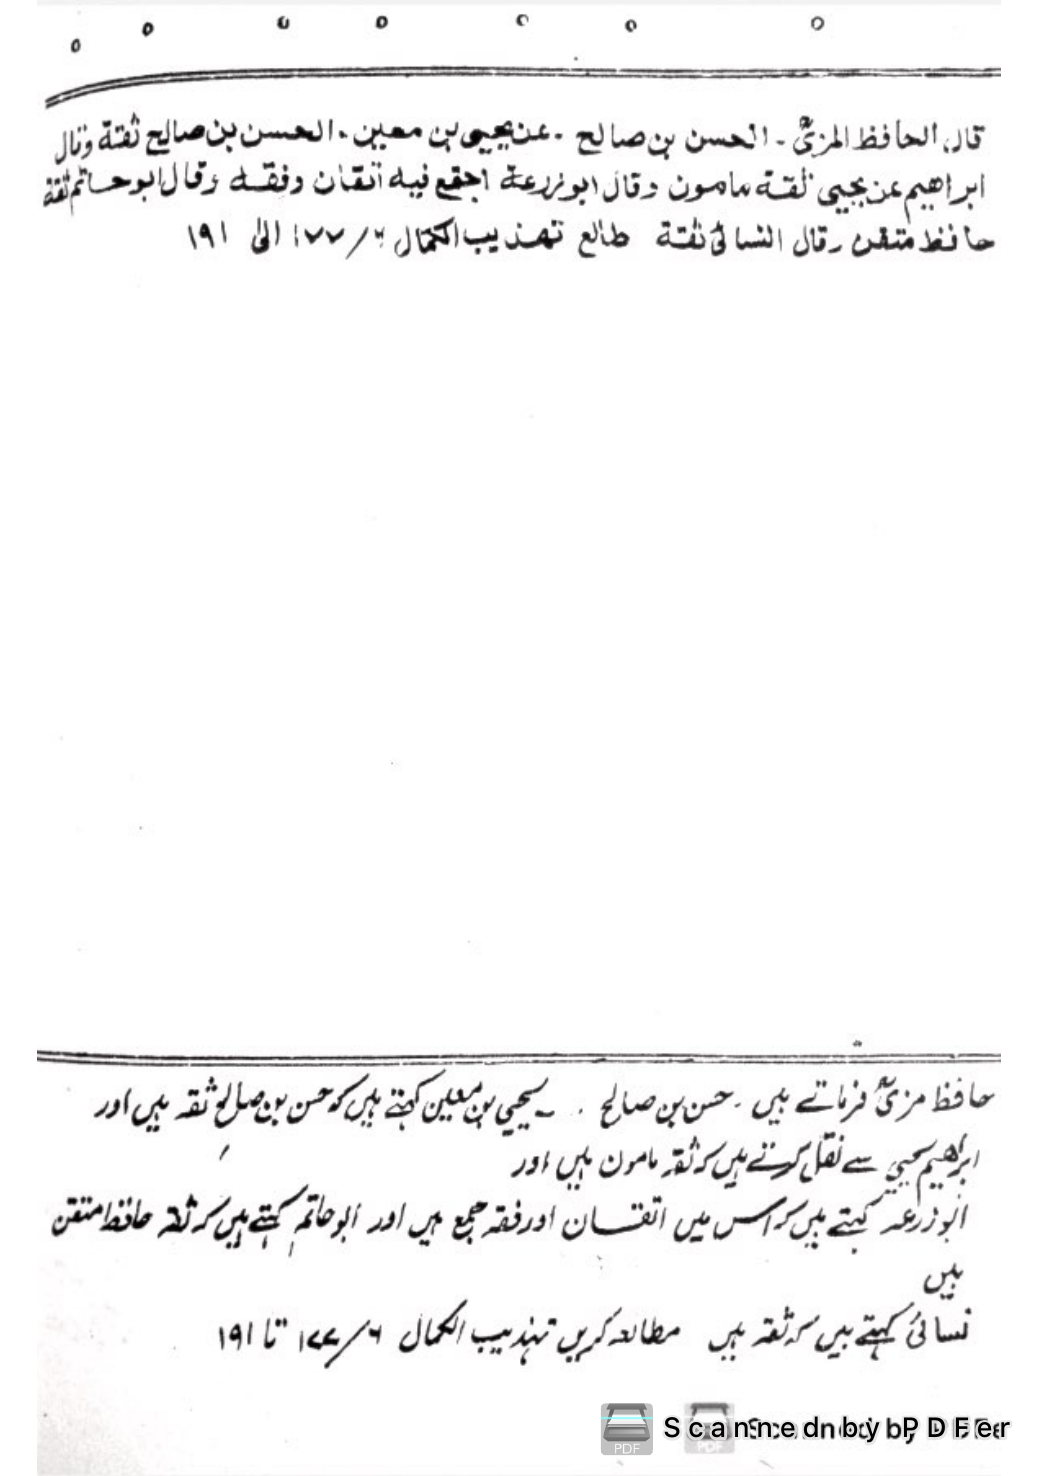 قال الحافظ المزیؒ - الحسن بن صالح - عن یحیی بن معین - الحسن بن صالح ثقة وقال
ابراهیم عن یحیی ثقة مامون وقال ابوزرعة اجتمع فیه اتقان وفقه وقال ابوحاتم ثقة
حافظ متقن وقال النسائی ثقة طالع تهذیب الکمال ۶/۱۷۷ الی ۱۹۱
حافظ مزیؒ فرماتے ہیں - حسن بن صالح - یحیی بن معین کہتے ہیں کہ حسن بن صالح ثقہ ہیں اور
ابراھیم یحیی سے نقل کرتے ہیں کہ ثقہ مامون ہیں اور
ابوزرعہ کہتے ہیں کہ اس میں اتقان اور فقہ جمع ہیں اور ابوحاتم کہتے ہیں کہ ثقہ حافظ متقن
ہیں
نسائی کہتے ہیں کہ ثقہ ہیں مطالعہ کریں تہذیب الکمال ۶/۱۷۷ تا ۱۹۱
Scanned by PDF